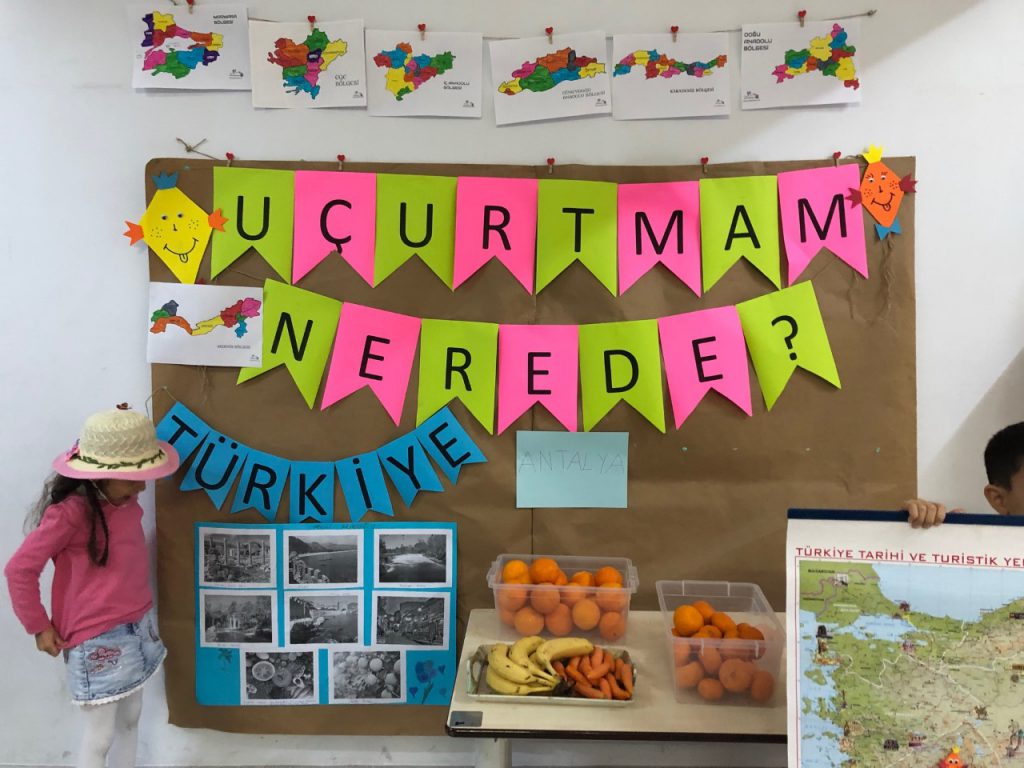 MARMARA BÖLGESİ
EGE BÖLGESİ
İÇ ANADOLU BÖLGESİ
GÜNEYDOĞU ANADOLU BÖLGESİ
KARADENİZ BÖLGESİ
DOĞU ANADOLU BÖLGESİ
UÇURTMAM
NEREDE?
AKDENİZ BÖLGESİ
TÜRKİYE
ANTALYA
TÜRKİYE TARİHİ VE TURİSTİK YE